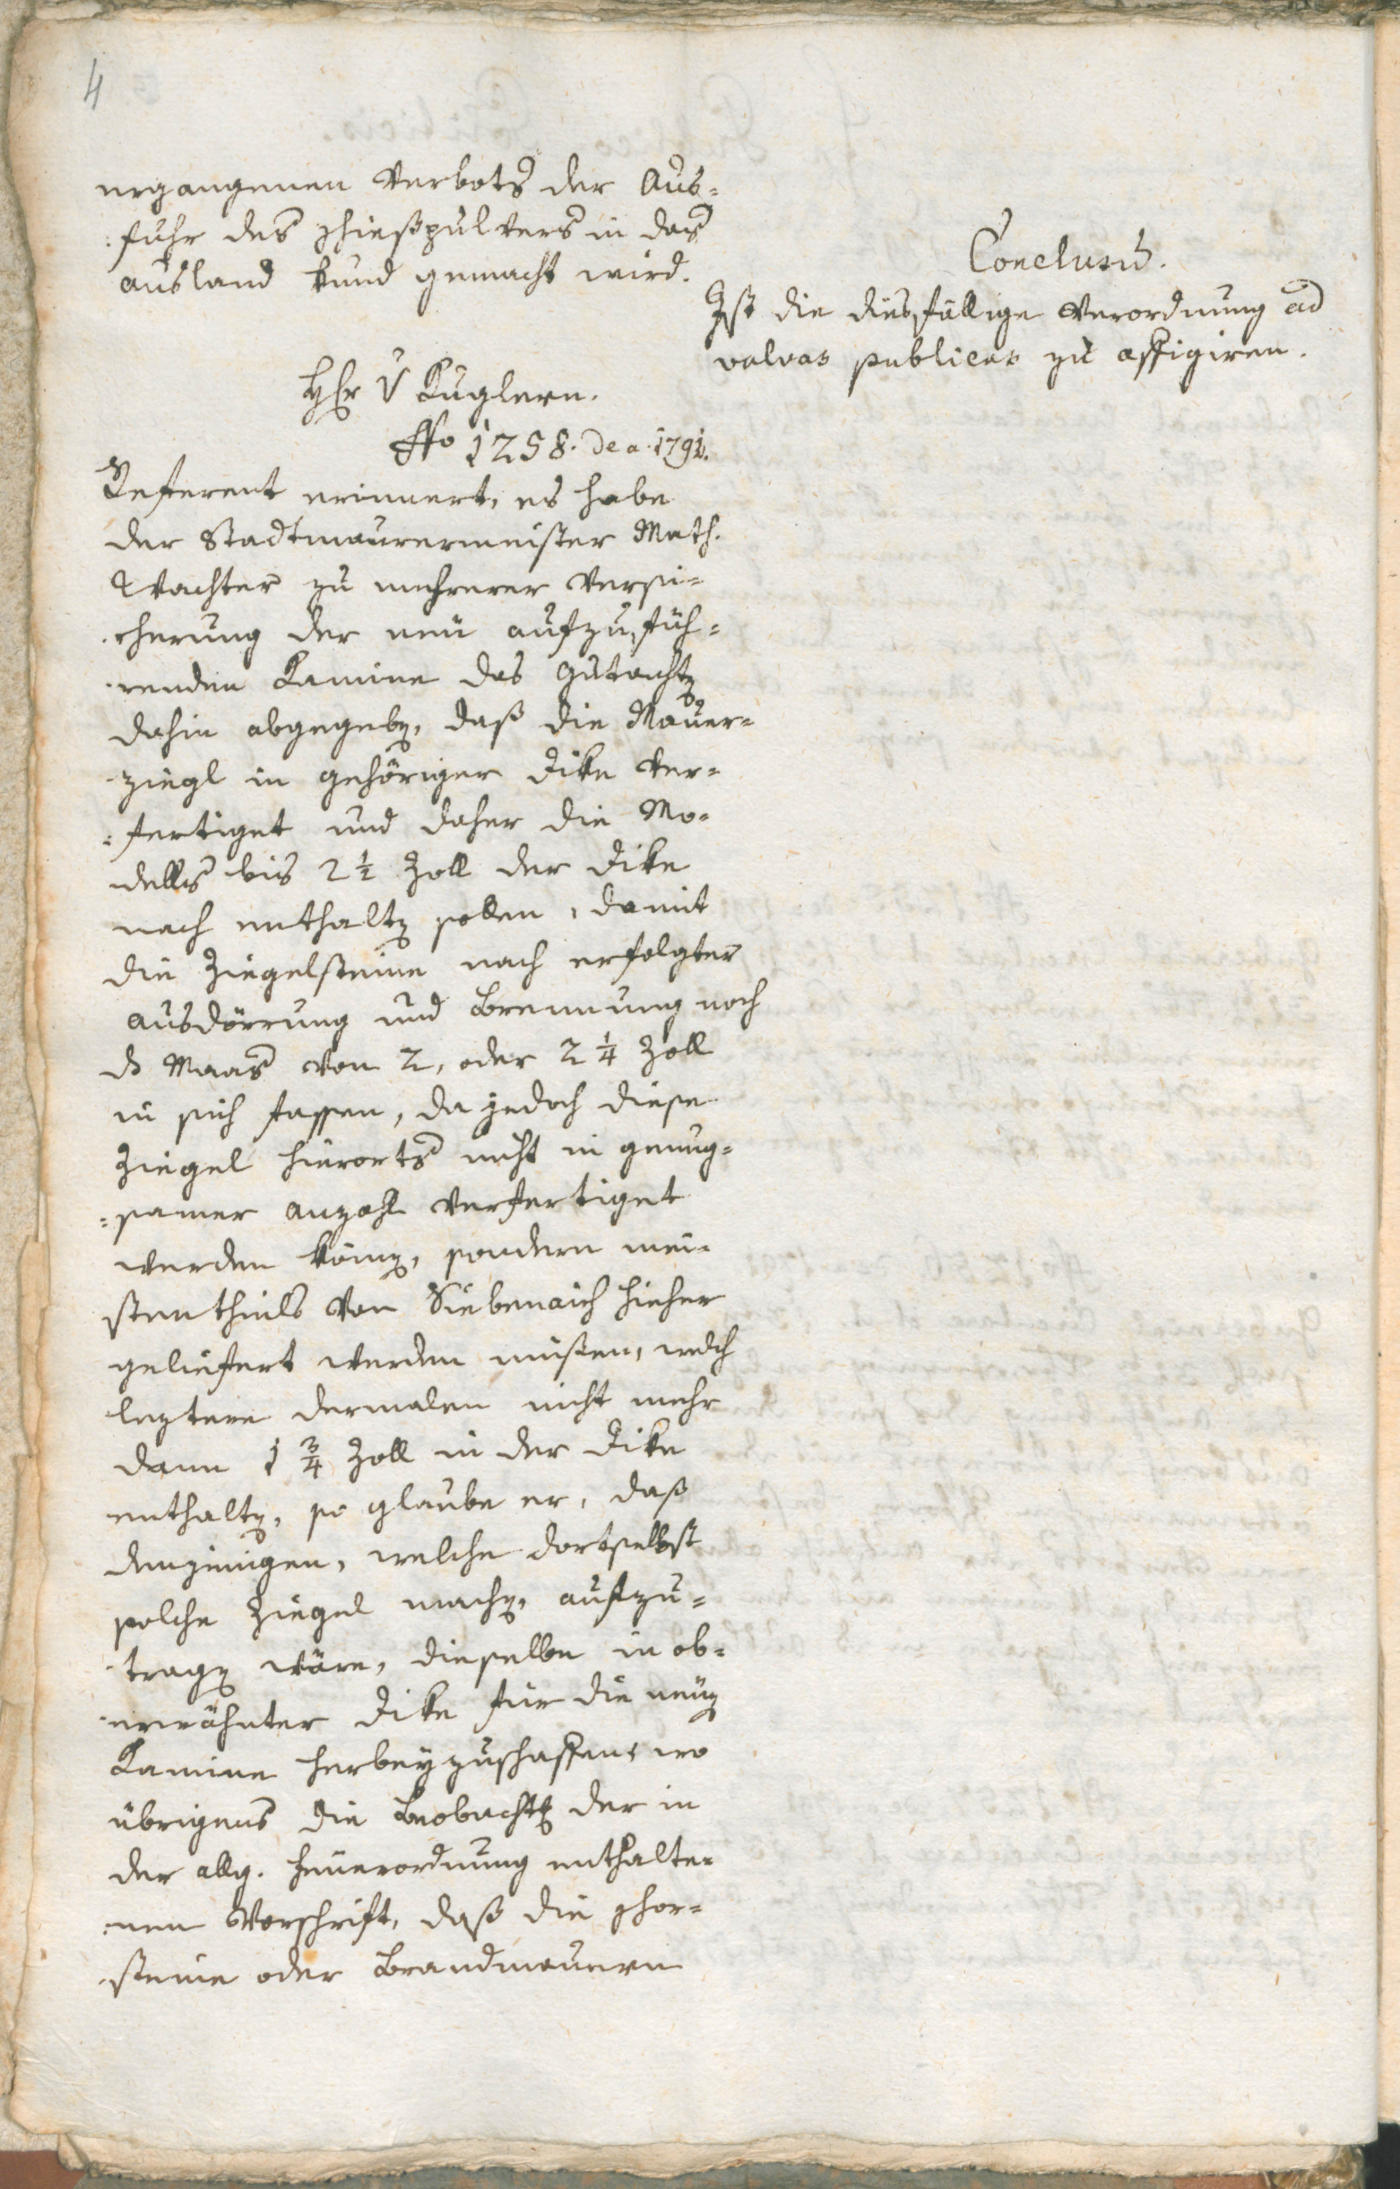 4
ergangenen Verbots der Aus-
fuhr des Schießpulvers in das
Ausland kund gemacht wird.
Conclusũ.
Ist die diesfällige Verordnung ad
valvas publicas zu affigiren.
Hr v Kuglern.
No 1258. de a. 1791.
Referent erinnert, es habe
der Stadtmaurermeister Math.
Wachter zu mehrerer Versi-
cherung der neu aufzufüh-
renden Kamine das Gutachtẽ
dahin abgegebẽ, daß die Mauer-
ziegl in gehöriger Dike ver-
fertiget und daher die Mo-
dells bis 2 1/2 Zoll der Dike
nach enthaltẽ sollen, damit
die Ziegelsteine nach erfolgter
Ausdörrung und Brennung noch
ds Maas von 2, oder 2 1/4 Zoll
in sich fassen, da jedoch diese
Ziegel hierorts nicht in genug-
samer Anzahl verfertiget
werden könnẽ, sondern mei-
stentheils von Siebenaich hieher
geliefert werden müßen, welch
leztere dermalen nicht mehr
dann 1 3/4 Zoll in der Dike
enthaltẽ, so glaube er, daß
denjenigen, welche dortselbst
solche Ziegel machẽ, aufzu-
tragẽ wäre, dieselbe in ob-
erwähnter Dike für die neuẽ
Kamine herbeyzuschaffen, wo
übrigens die Beobachtg der in
der allg. Feuerordnung enthalte-
nen Vorschrift, daß die Schor-
steine oder Brandmauern